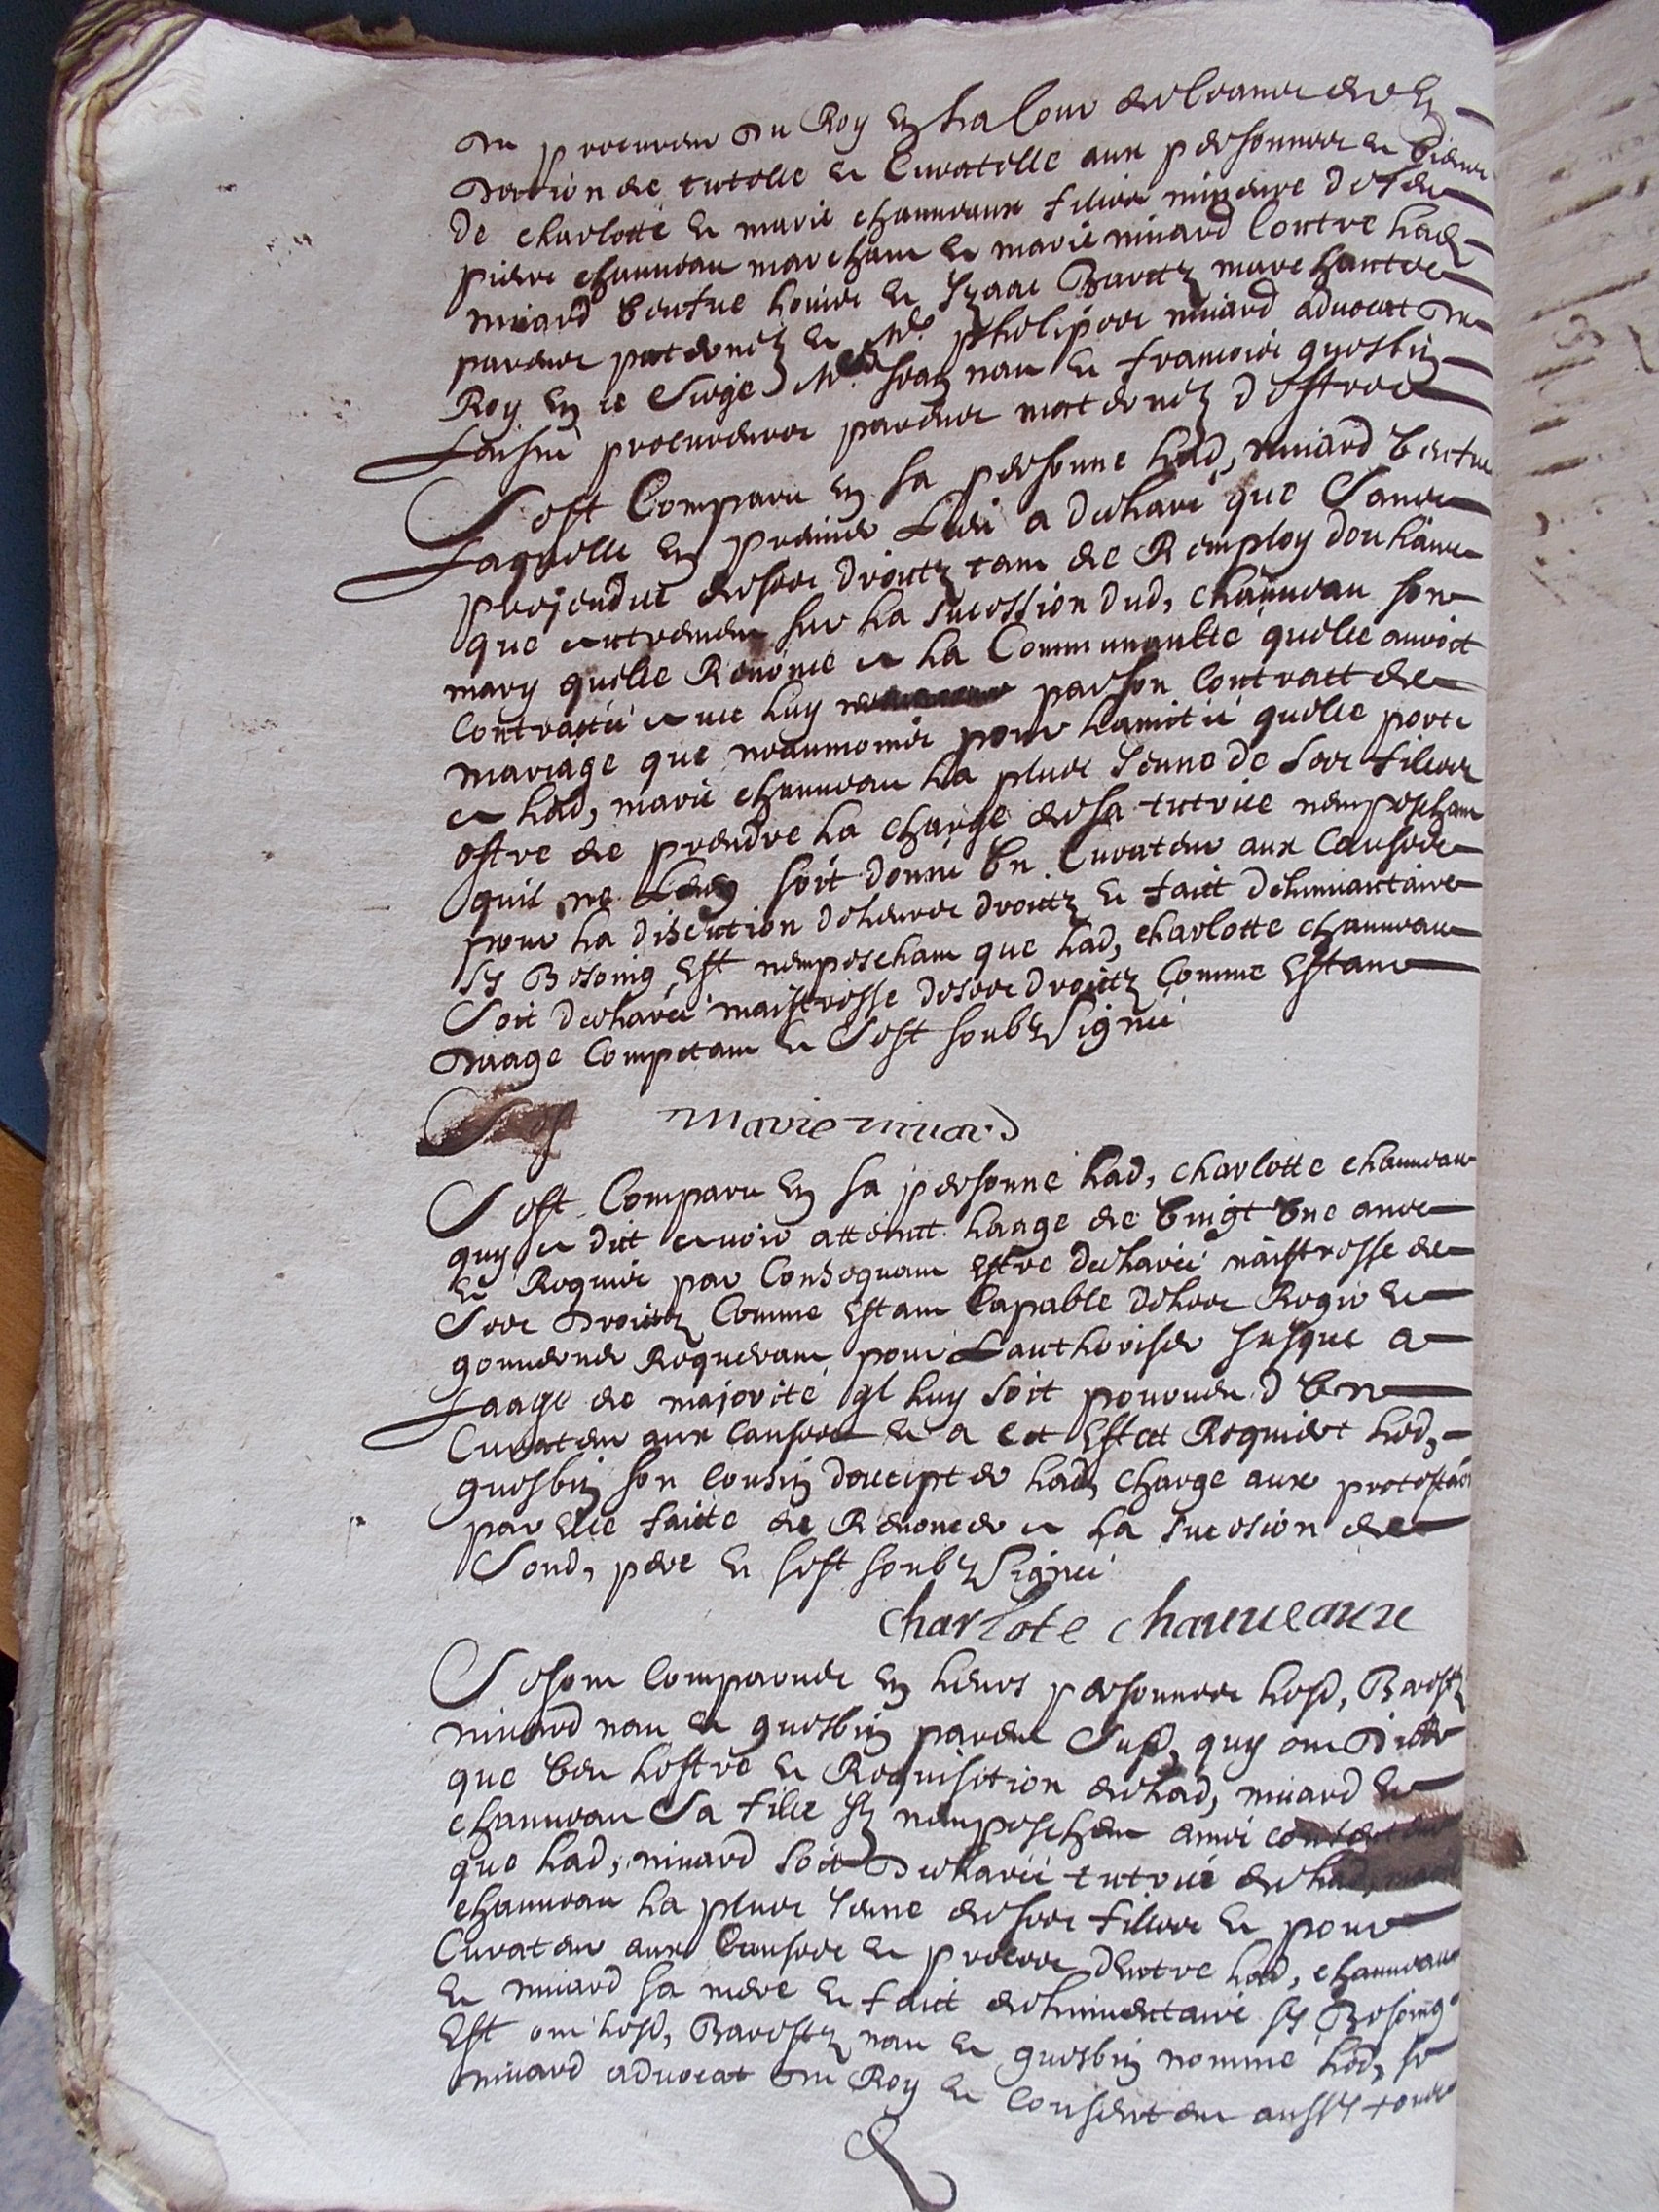 du procureur du Roy en la Cour de ceans de
dation de tutelle et Curatelle aux personnes et biens
de charlotte et marie chauveaux filles mineure de feu
pierre chauveau marchant et marie niuard Contre lad,
niuard veufue Louis et Izaac marchantz
parens paternelz et Me philipes niuard aduocat du
Roy en ce siege Me Jean nau et francois guesbin
Laisné procureurs parens maternelz d'estre
Sest Comparu en sa personne lad, niuard veufue
Laquelle en premier Lieu a declaré que sans
prejudice de ses droictz tant de Remploy douhaire
que autrement sur la sucession dud, chauveau son
mary quelle Renonce a la Communaulté quelle auroit
Contractée auec luy par son Contract de
mariage que neaumoins pour lamitié quelle porte
a lad, marie chauveau la plus Jeune de ses filles
ofre de prendre la charge de sa tutrice nempeschant
quil ne Leur soit donné vn Curateur aux Causes
pour la discution de leurs droictz et faict dehinuantaire
sy Besoing Est nempeschant que lad, charlotte chauveau
Soit declarée maistresse de ses droictz Comme Estant
daage Competant et Sest soubzSignée
marie niuard
Sest Comparu en sa personne lad, charlotte chauveau
quy a dict auoir attainct laage de vingt vne ans
et Requis par Consequant Estre declarée maistresse de
Ses droictz Comme Estant Capable de les Regir et
gouuerner Requerant pour Lauthoriser Jusque a
Laage de majorité ql luy soit pourueu d vn
Curateur aux causes et a cet Effect Requiert led,
guesbin son Cousin daccepter lad, charge aux protestaõn
par elle faicte de Renoncer a la sucesion de
Sond, pere et sest soubzSignée
charlote chauueaux
Se sont Comparues en leurs personnes lesd,
niuard nau et guesbin parens Susd, quy ont dict
que veu lofre et Requisition de lad, niuard et
chauveau Sa fille Ilz nempeschent
que lad, niuard soit declarée tutrice de lad,
chauveau la plus Jeune de ses filles et pour
Curateur aux Causes et proces dentre lad, chauveau
et niuard sa mere et faict dehinuentaire sy Besoing
Est ont lesd, nau et guesbin nommé led, sr
niuard aduocat du Roy et Consentent aussy